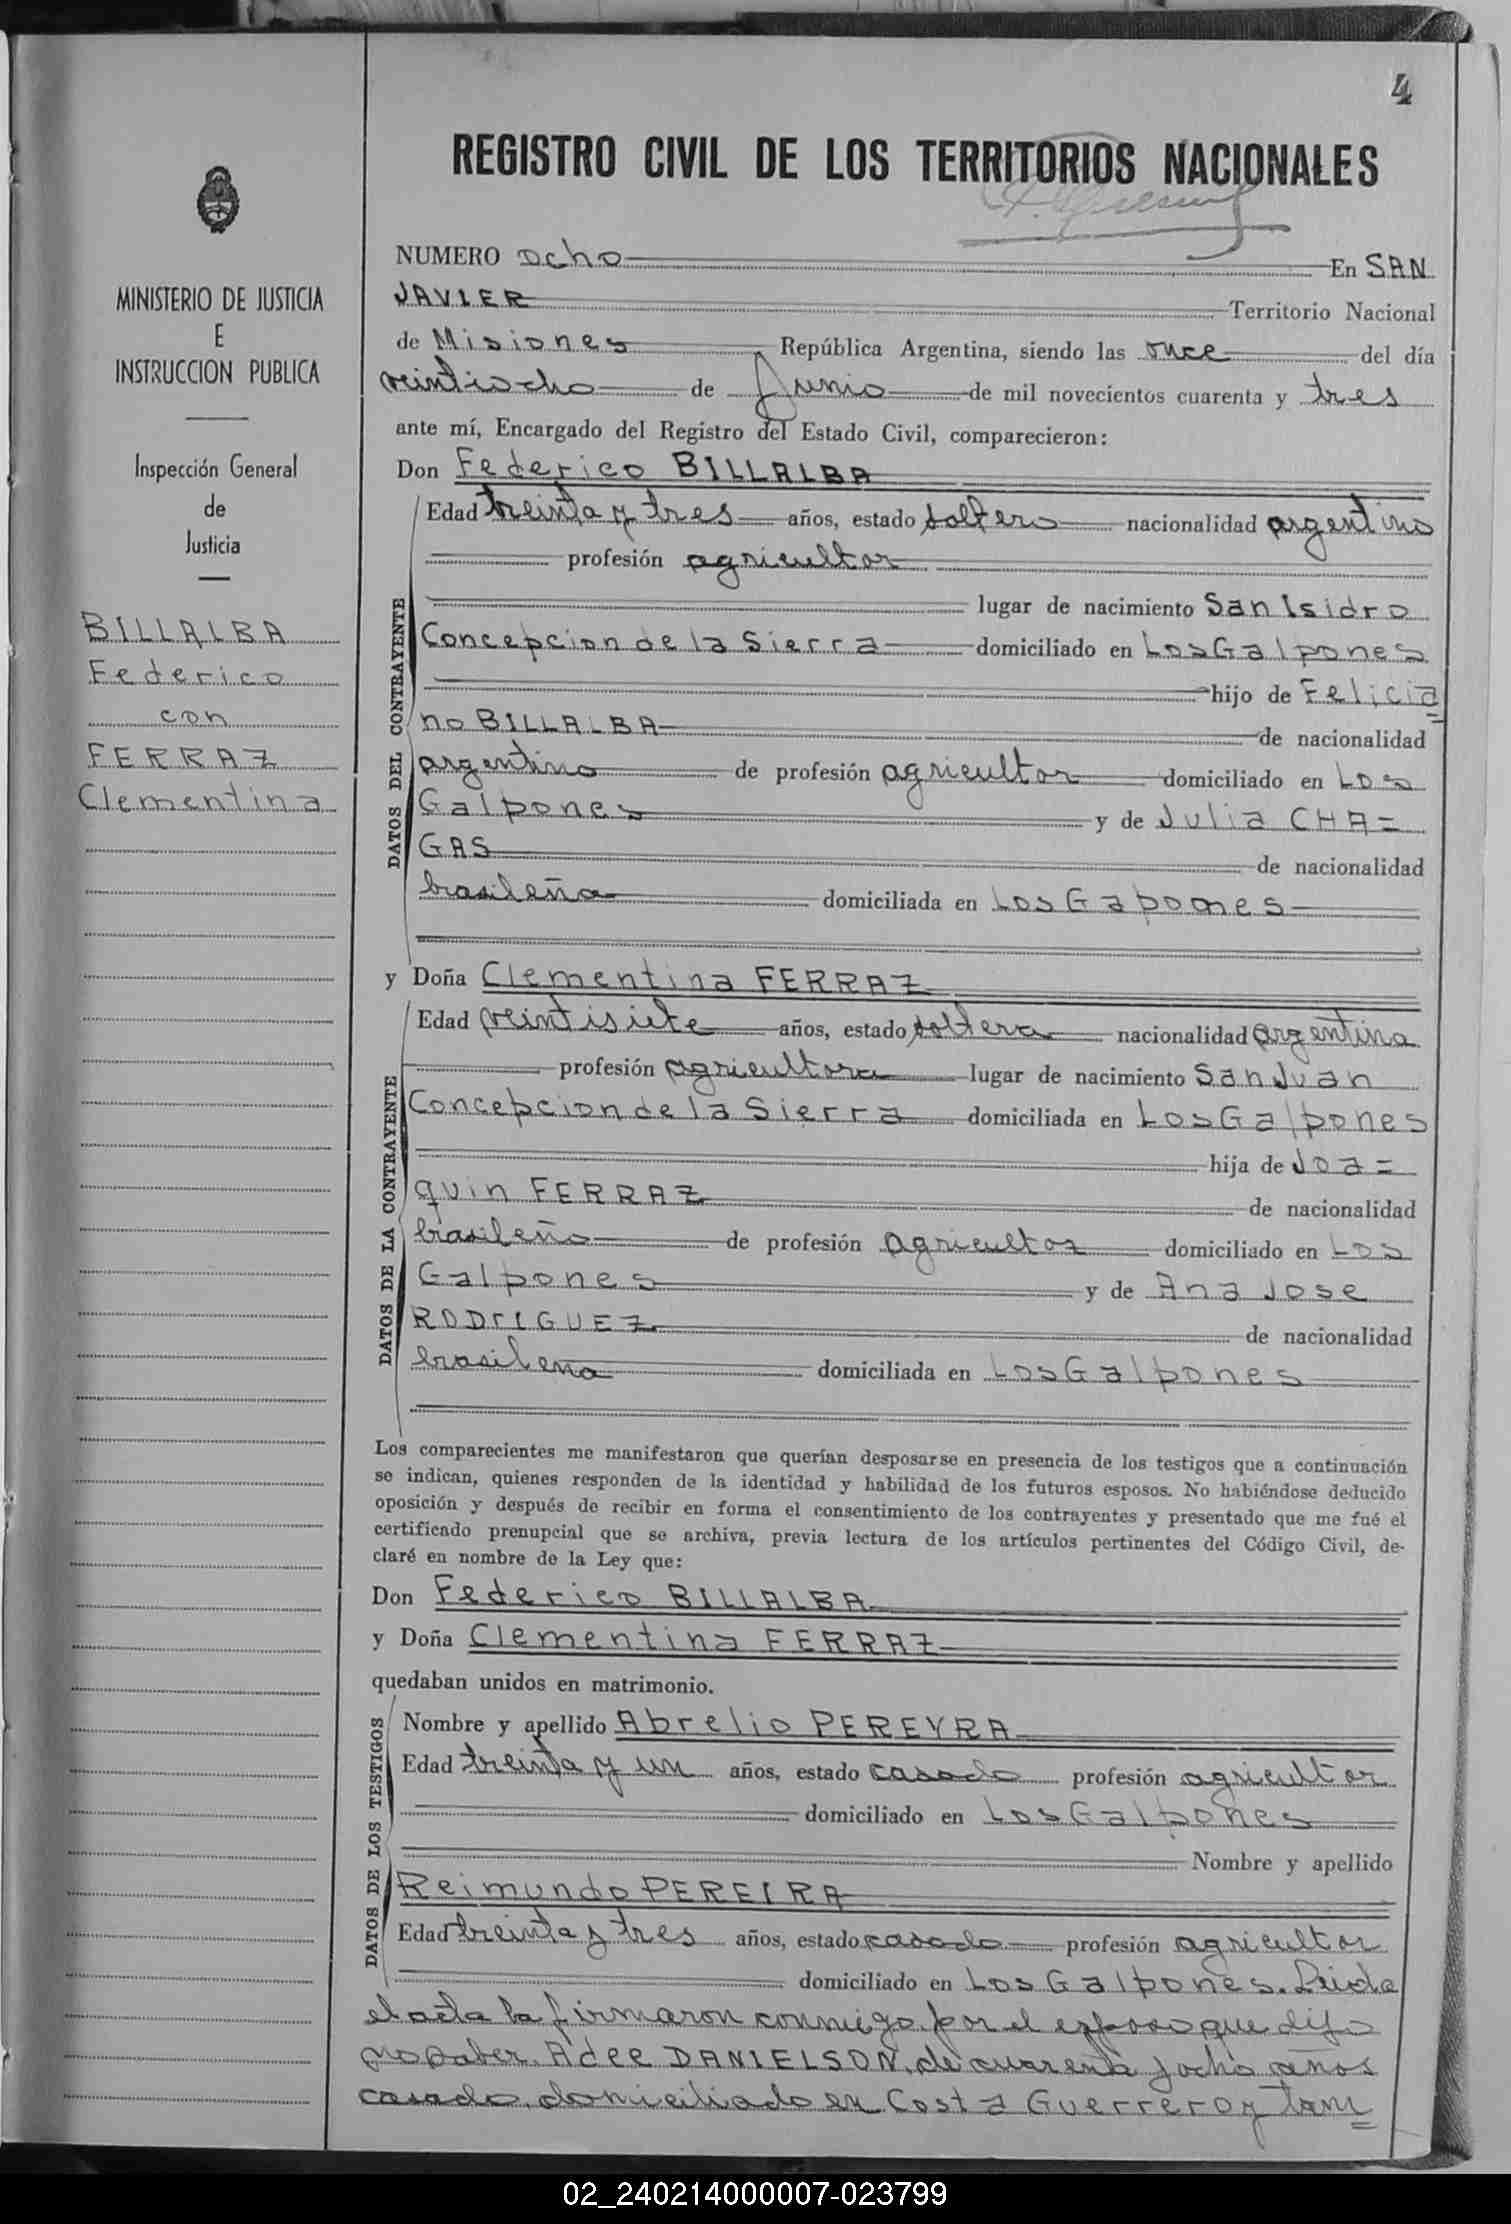 4
REGISTRO CIVIL DE LOS TERRITORIOS NACIONALES
MINISTERIO DE JUSTICIA
E
INSTRUCCION PUBLICA
Inspección General
de
Justicia
BILLALBA
Federico
con
FERRAZ
Clementina
NUMERO ocho En SAN
JAVIER Territorio Nacional
de Misiones República Argentina, siendo las once del día
veintiocho de Junio de mil novecientos cuarenta y tres
ante mí, Encargado del Registro del Estado Civil, comparecieron:
Don Federico BILLALBA
DATOS DEL CONTRAYENTE
Edad treinta y tres años, estado soltero nacionalidad argentino
profesión agricultor
lugar de nacimiento San Isidro
Concepcion de la Sierra domiciliado en Los Galpones
hijo de Felicia=
no BILLALBA de nacionalidad
argentino de profesión agricultor domiciliado en Los
Galpones y de Julia CHA=
GAS de nacionalidad
brasileña domiciliada en Los Gapones
y Doña Clementina FERRAZ
DATOS DE LA CONTRAYENTE
Edad veintisiete años, estado soltera nacionalidad argentina
profesión agricultora lugar de nacimiento San Juan
Concepcion de la Sierra domiciliada en Los Galpones
hija de Joa=
quin FERRAZ de nacionalidad
brasileño de profesión agricultor domiciliado en Los
Galpones y de Ana Jose
RODrIGUEZ de nacionalidad
brasilena domiciliada en Los Galpones
Los comparecientes me manifestaron que querían desposarse en presencia de los testigos que a continuación
se indican, quienes responden de la identidad y habilidad de los futuros esposos. No habiéndose deducido
oposición y después de recibir en forma el consentimiento de los contrayentes y presentado que me fué el
certificado prenupcial que se archiva, previa lectura de los artículos pertinentes del Código Civil, de-
claré en nombre de la Ley que:
Don Federico BILLALBA
y Doña Clementina FERRAZ
quedaban unidos en matrimonio.
DATOS DE LOS TESTIGOS
Nombre y apellido Abrelio PEREYRA
Edad treinta y un años, estado casado profesión agricultor
domiciliado en Los Galpones
Nombre y apellido
Reimundo PEREIRA
Edad treinta y tres años, estado casado profesión agricultor
domiciliado en Los Galpones. Leida
el acta la firmaron conmigo, por el esposo que dijo
no saber, Adee DANIELSON, de cuarenta y ocho años
casado, domiciliado en Costa Guerrero y tam=
02_240214000007-023799